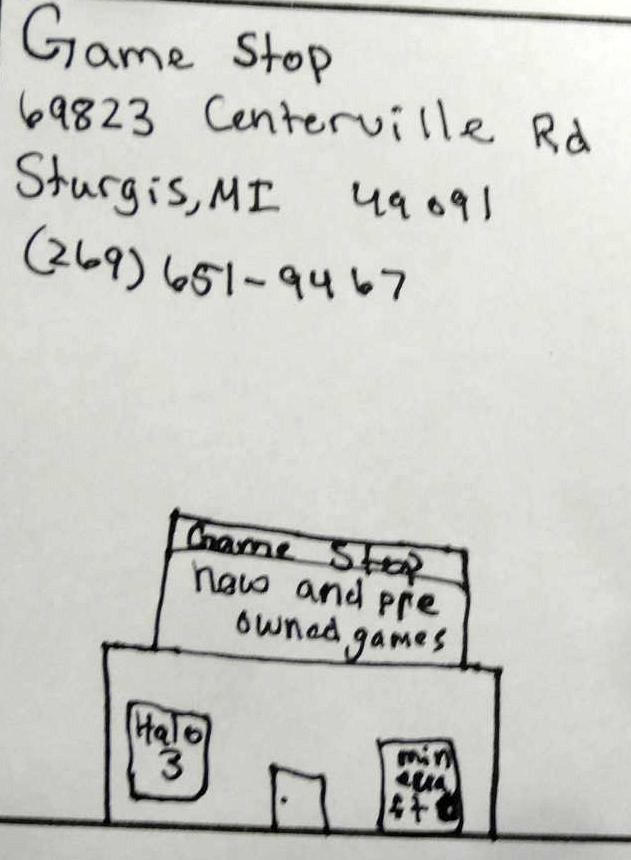 Game Stop
69823 Centerville Rd
Sturgis, MI 49091
(269) 651-9467
Game Stop
new and pre
owned games
Halo
3
min